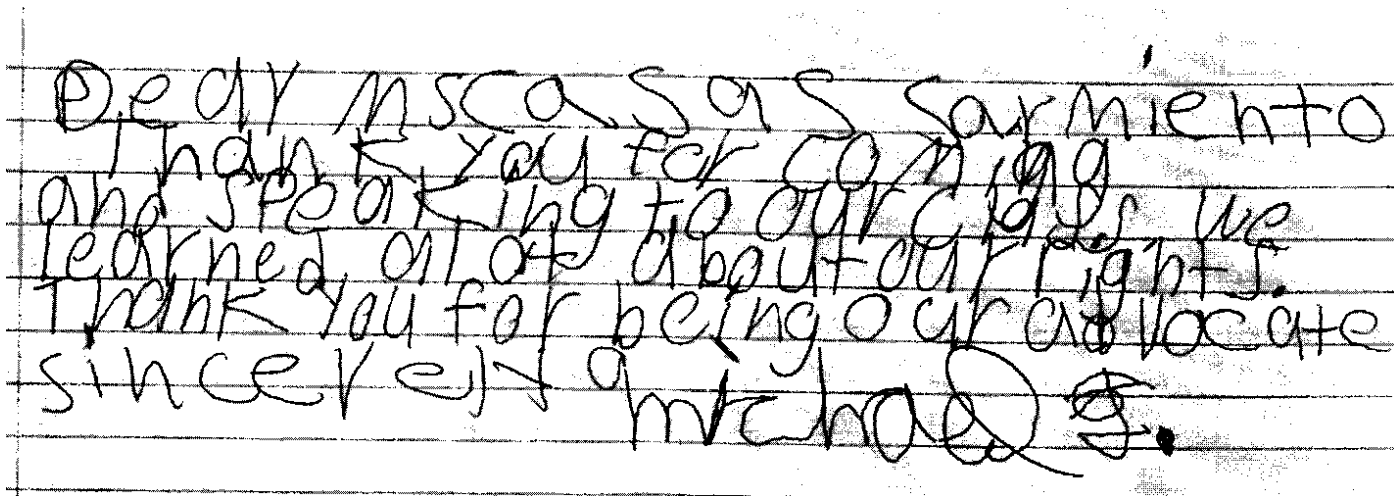 Dear mscasas sarmiento
Thank you for coming
and speaking to our class. we
learned alot about our rights.
Thank you for being our advocate
sincerely
michael